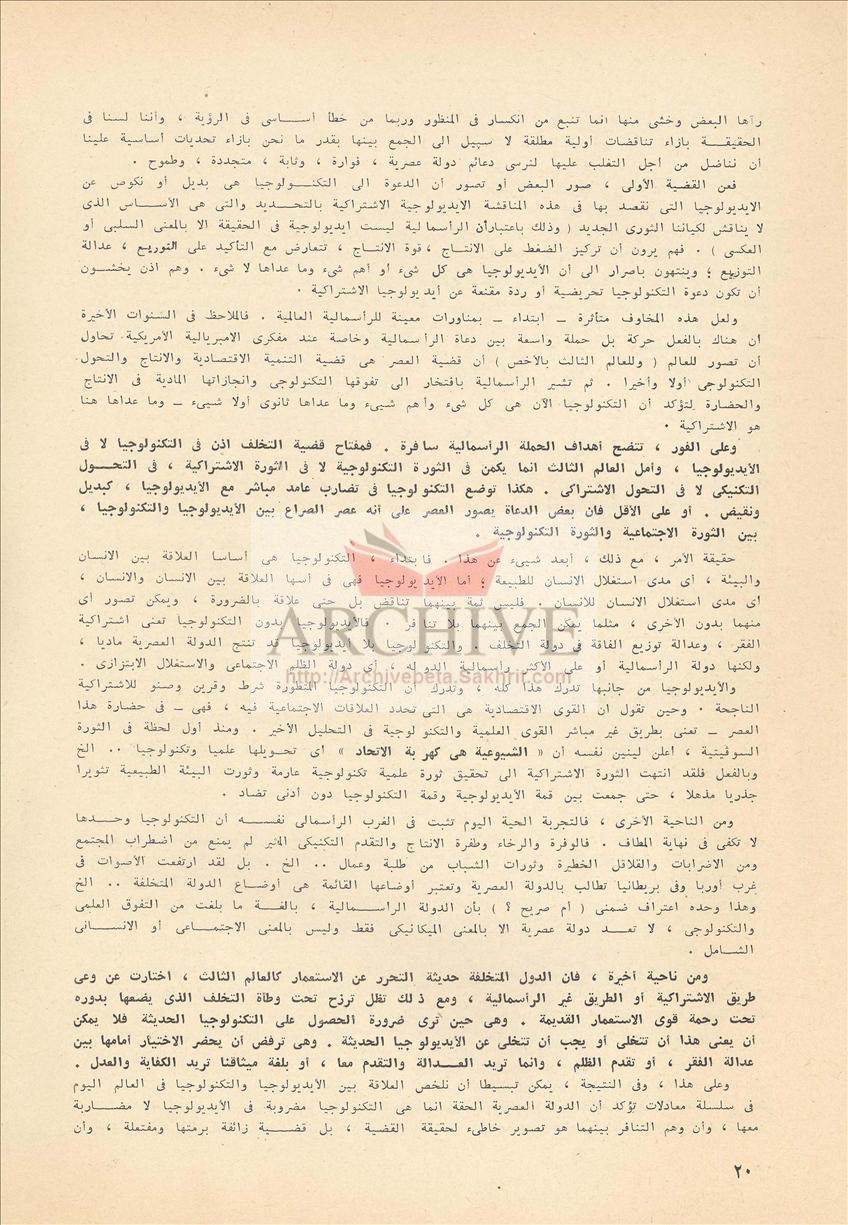 رآها البعض وخشى منها انما تنبع من انكسار فى المنظور وربما من خطأ أســاسى فى الرؤية ، وأننا لسنا فى
الحقيقــة بازاء تناقضات أولية مطلقة لا سبيل الى الجمع بينها بقدر ما نحن بازاء تحديات أساسية علينا
أن نناضل من أجل التغلب عليها لنرسى دعائم دولة عصرية ، فوارة ، وثابة ، متجددة ، وطموح .
فعن القضية الأولى ، صور البعض أو تصور أن الدعوة الى التكنــولوجيا هى بديل أو نكوص عن
الايديولوجيا التى نقصد بها فى هذه المناقشة الايديولوجية الاشتراكية بالتحــديد والتى هى الأســاس الذى
لا يناقش لكياننا الثورى الجديد ( وذلك باعتبارأن الرأسمالية ليست ايديولوجية فى الحقيقة الا بالمعنى السلبى أو
العكسى ) . فهم يرون أن تركيز الضغط على الانتاج ، قوة الانتاج ، تتعارض مع التأكيد على التوزيع ، عدالة
التوزيع ؛ وينتهون باصرار الى أن الأيديولوجيا هى كل شىء أو أهم شىء وما عداها لا شىء . وهم اذن يخشــون
أن تكون دعوة التكنولوجيا تحريضية أو ردة مقنعة عن أيديولوجيا الاشتراكية .
ولعل هذه المخاوف متأثرة ــ ابتداء ــ بمناورات معينة للرأسمالية العالمية . فالملاحظ فى السنوات الأخيرة
أن هناك بالفعل حركة بل حملة واسعة بين دعاة الرأسمالية وخاصة عند مفكرى الامبريالية الأمريكية تحاول
أن تصور للعالم ( وللعالم الثالث بالأخص ) أن قضية العصر هى قضية التنمية الاقتصادية والانتاج والتحول
التكنولوجى أولا وأخيرا . ثم تشير الرأسمالية بافتخار الى تفوقها التكنولوجى وانجازاتها المادية فى الانتاج
والحضارة لتؤكد أن التكنولوجيا الآن هى كل شىء وأهم شيىء وما عداها ثانوى أولا شيىء ــ وما عداها هنا
هو الاشتراكية .
وعلى الفور ، تتضح أهداف الحملة الرأسمالية سافرة . فمفتاح قضية التخلف اذن فى التكنولوجيا لا فى
الأيديولوجيا ، وأمل العالم الثالث انما يكمن فى الثورة التكنولوجية لا فى الثورة الاشتراكية ، فى التحــول
التكنيكى لا فى التحول الاشتراكى . هكذا توضع التكنولوجيا فى تضارب عامد مباشر مع الأيديولوجيا ، كبديل
ونقيض . أو على الأقل فان بعض الدعاة يصور العصر على أنه عصر الصراع بين الأيديولوجيا والتكنولوجيا ،
بين الثورة الاجتماعية والثورة التكنولوجية .
حقيقة الأمر ، مع ذلك ، أبعد شيىء عن هذا . فابتداء ، التكنولوجيا هى أساسا العلاقة بين الانسان
والبيئة ، أى مدى استغلال الانسان للطبيعة ؛ أما الأيديولوجيا فهى فى أسها العلاقة بين الانسان والانسان ،
أى مدى استغلال الانسان للانسان . فليس ثمة بينهما تناقض بل حتى علاقة بالضرورة ، ويمكن تصور أى
منهما بدون الأخرى ، مثلما يمكن الجمع بينهما بلا تنافر . فالأيديولوجيا بدون التكنولوجيا تعنى اشتراكية
الفقر ، وعدالة توزيع الفاقة فى دولة التخلف ، والتكنولوجيا بلا أيديولوجيا قد تنتج الدولة العصرية ماديا ،
ولكنها دولة الرأسمالية أو على الأكثر رأسمالية الدوله ، أى دولة الظلم الاجتماعى والاستغلال الابتزازى .
والأيديولوجيا من جانبها تدرك هذا كله ، وتدرك أن التكنولوجيا المتطورة شرط وقرين وصنو للاشتراكية
الناجحة . وحين تقول ان القوى الاقتصادية هى التى تحدد العلاقات الاجتماعية فيه ، فهى ــ فى حضارة هذا
العصر ــ تعنى بطريق غير مباشر القوى العلمية والتكنولوجية فى التحليل الأخير . ومنذ أول لحظة فى الثورة
السوفيتية ، أعلن لينين نفسه أن « الشيوعية هى كهربة الاتحاد » أى تحــويلها علميا وتكنولوجيا .. الخ
وبالفعل فلقد انتهت الثورة الاشتراكية الى تحقيق ثورة علمية تكنولوجية عارمة وثورت البيئة الطبيعية تثويرا
جذريا مذهلا ، حتى جمعت بين قمة الأيديولوجية وقمة التكنولوجيا دون أدنى تضاد .
ومن الناحية الأخرى ، فالتجربة الحية اليوم تثبت فى الغرب الرأسمالى نفســه أن التكنولوجيا وحــدها
لا تكفى فى نهاية المطاف . فالوفرة والرخاء وطفرة الانتاج والتقدم التكنيكى المثير لم يمنع من اضطراب المجتمع
ومن الاضرابات والقلاقل الخطيرة وثورات الشباب من طلبة وعمال .. الخ . بل لقد ارتفعت الأصوات فى
غرب أوربا وفى بريطانيا تطالب بالدولة العصرية وتعتبر أوضاعها القائمة هى أوضــاع الدولة المتخلفة .. الخ
وهذا وحده اعتراف ضمنى ( أم صريح ؟ ) بأن الدولة الراســمالية ، بالغــة ما بلغت من التفوق العلمى
والتكنولوجى ، لا تعــد دولة عصرية الا بالمعنى الميكانيكى فقط وليس بالمعنى الاجتمــاعى أو الانســانى
الشــامل .
ومن ناحية أخيرة ، فان الدول المتخلفة حديثة التحرر عن الاستعمار كالعالم الثالث ، اختارت عن وعى
طريق الاشتراكية أو الطريق غير الرأسمالية ، ومع ذلك تظل ترزح تحت وطأة التخلف الذى يضعها بدوره
تحت رحمة قوى الاستعمار القديمة . وهى حين ترى ضرورة الحصول على التكنولوجيا الحديثة فلا يمكن
أن يعنى هذا أن تتخلى أو يجب أن تتخلى عن الأيديولوجيا الحديثة . وهى ترفض أن يحضر الاختيار أمامها بين
عدالة الفقر ، أو تقدم الظلم ، وانما تريد العــدالة والتقدم معا ، أو بلغة ميثاقنا تريد الكفاية والعدل .
وعلى هذا ، وفى النتيجة ، يمكن تبسيطا أن نلخص العلاقة بين الأيديولوجيا والتكنولوجيا فى العالم اليوم
فى سلسلة معادلات تؤكد أن الدولة العصرية الحقة انما هى التكنولوجيا مضروبة فى الأيديولوجيا لا مضــاربة
معها ، وأن وهم التنافر بينهما هو تصوير خاطىء لحقيقة القضية ، بل قضــية زائفة برمتها ومفتعلة ، وأن
٢٠
ARCHIVE
http://Archivebeta.Sakhrit.com